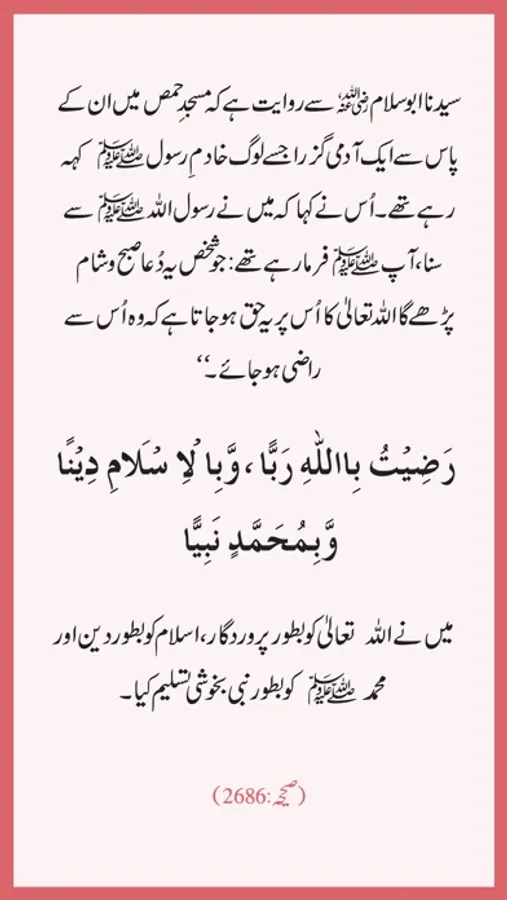 سیدنا ابو سلام رضی اللہ عنہ سے روایت ہے کہ مسجدِ حمص میں ان کے
پاس سے ایک آدمی گزرا جسے لوگ خادمِ رسول ﷺ کہہ
رہے تھے۔ اُس نے کہا کہ میں نے رسول اللہ ﷺ سے
سنا، آپ ﷺ فرما رہے تھے: جو شخص یہ دُعا صبح و شام
پڑھے گا اللہ تعالیٰ کا اُس پر یہ حق ہو جاتا ہے کہ وہ اُس سے
راضی ہو جائے۔‘‘
رَضِيْتُ بِاللّٰهِ رَبًّا، وَّبِا لْاِ سْلَامِ دِيْنًا
وَّبِمُحَمَّدٍ نَبِيًّا
میں نے اللہ تعالیٰ کو بطور پروردگار، اسلام کو بطور دین اور
محمد ﷺ کو بطور نبی بخوشی تسلیم کیا۔
(صحیحہ:2686)